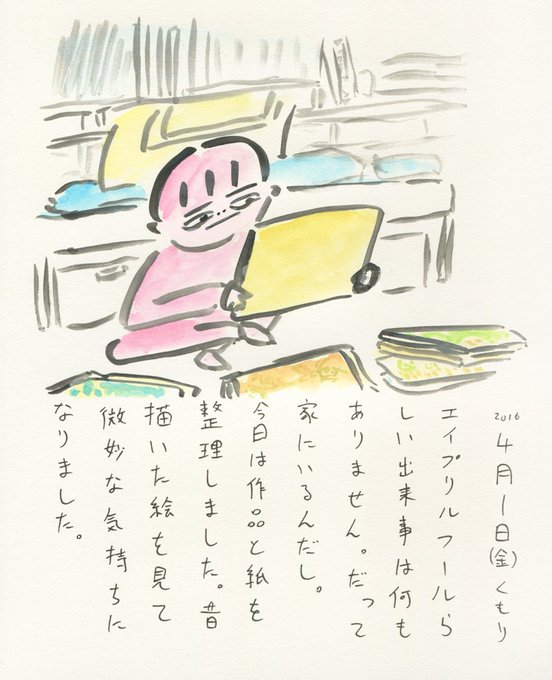 2016 4月1日(金)くもり
エイプリルフールら
しい出来事は何も
ありません。だって
家にいるんだし。
今日は作品と紙を
整理しました。昔
描いた絵を見て
微妙な気持ちに
なりました。